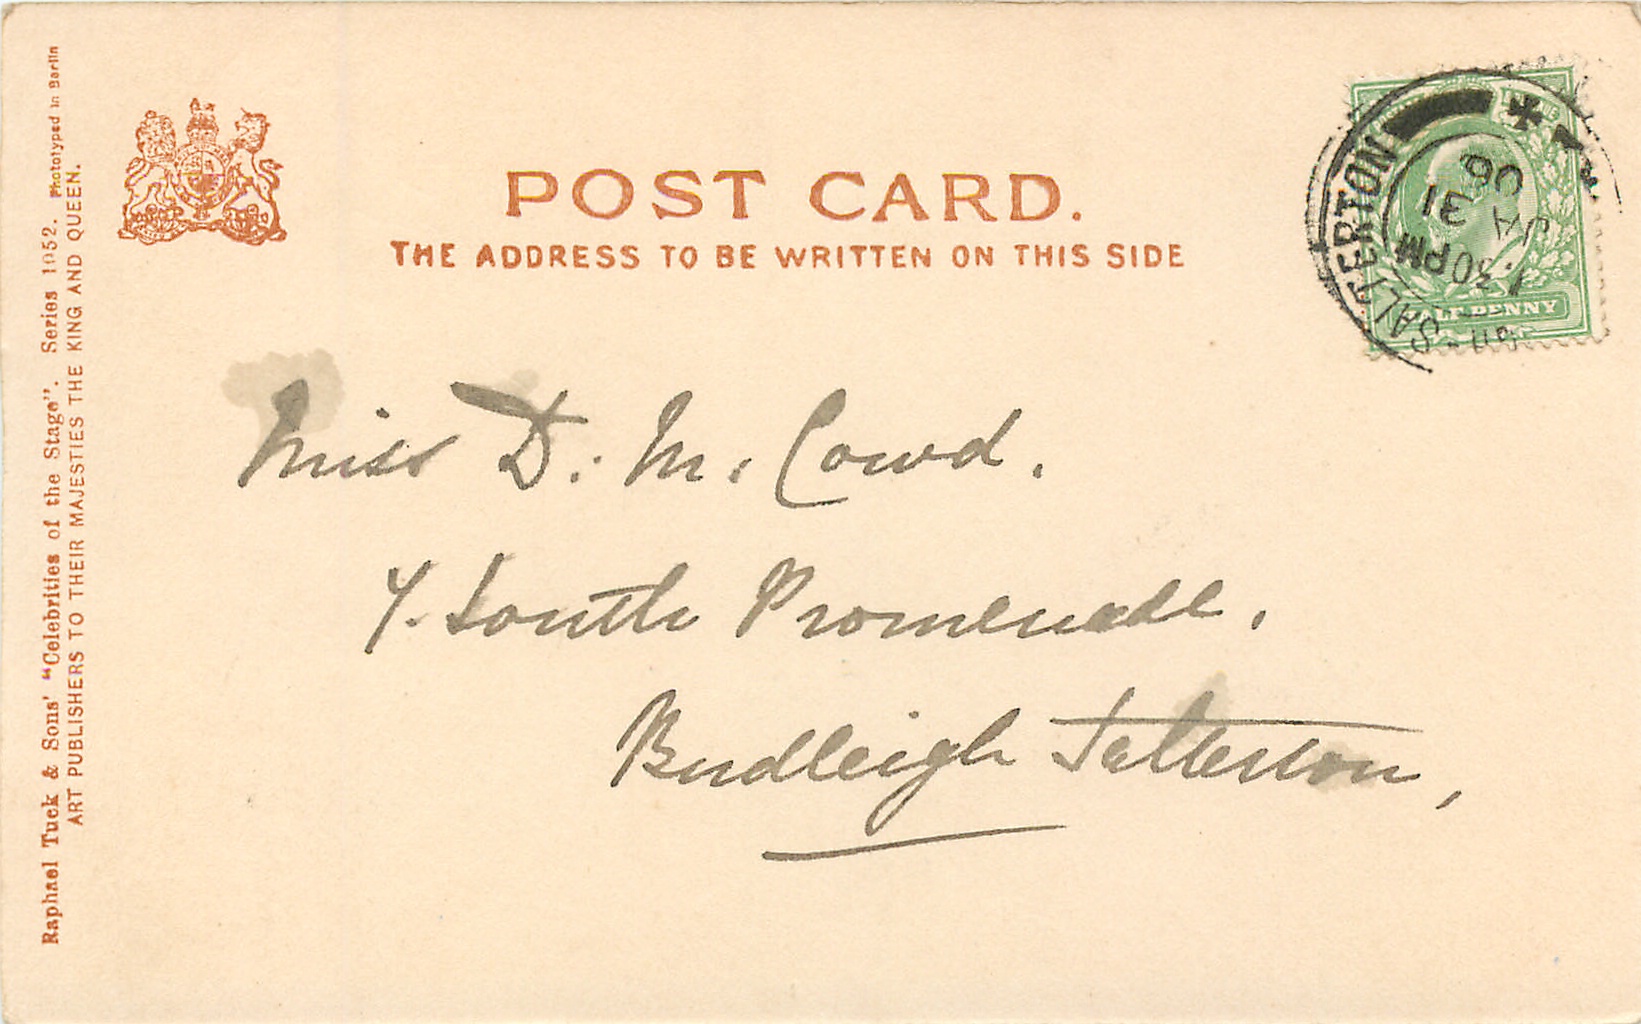 POST CARD.
THE ADDRESS TO BE WRITTEN ON THIS SIDE
Raphael Tuck & Sons' "Celebrities of the Stage". Series 1052. Phototyped in Berlin
ART PUBLISHERS TO THEIR MAJESTIES THE KING AND QUEEN.
SALTERTON
1.30PM
JA 31
06
HALF PENNY
Miss D. M. Cowd.
7. South Promenade.
Budleigh Salterton,